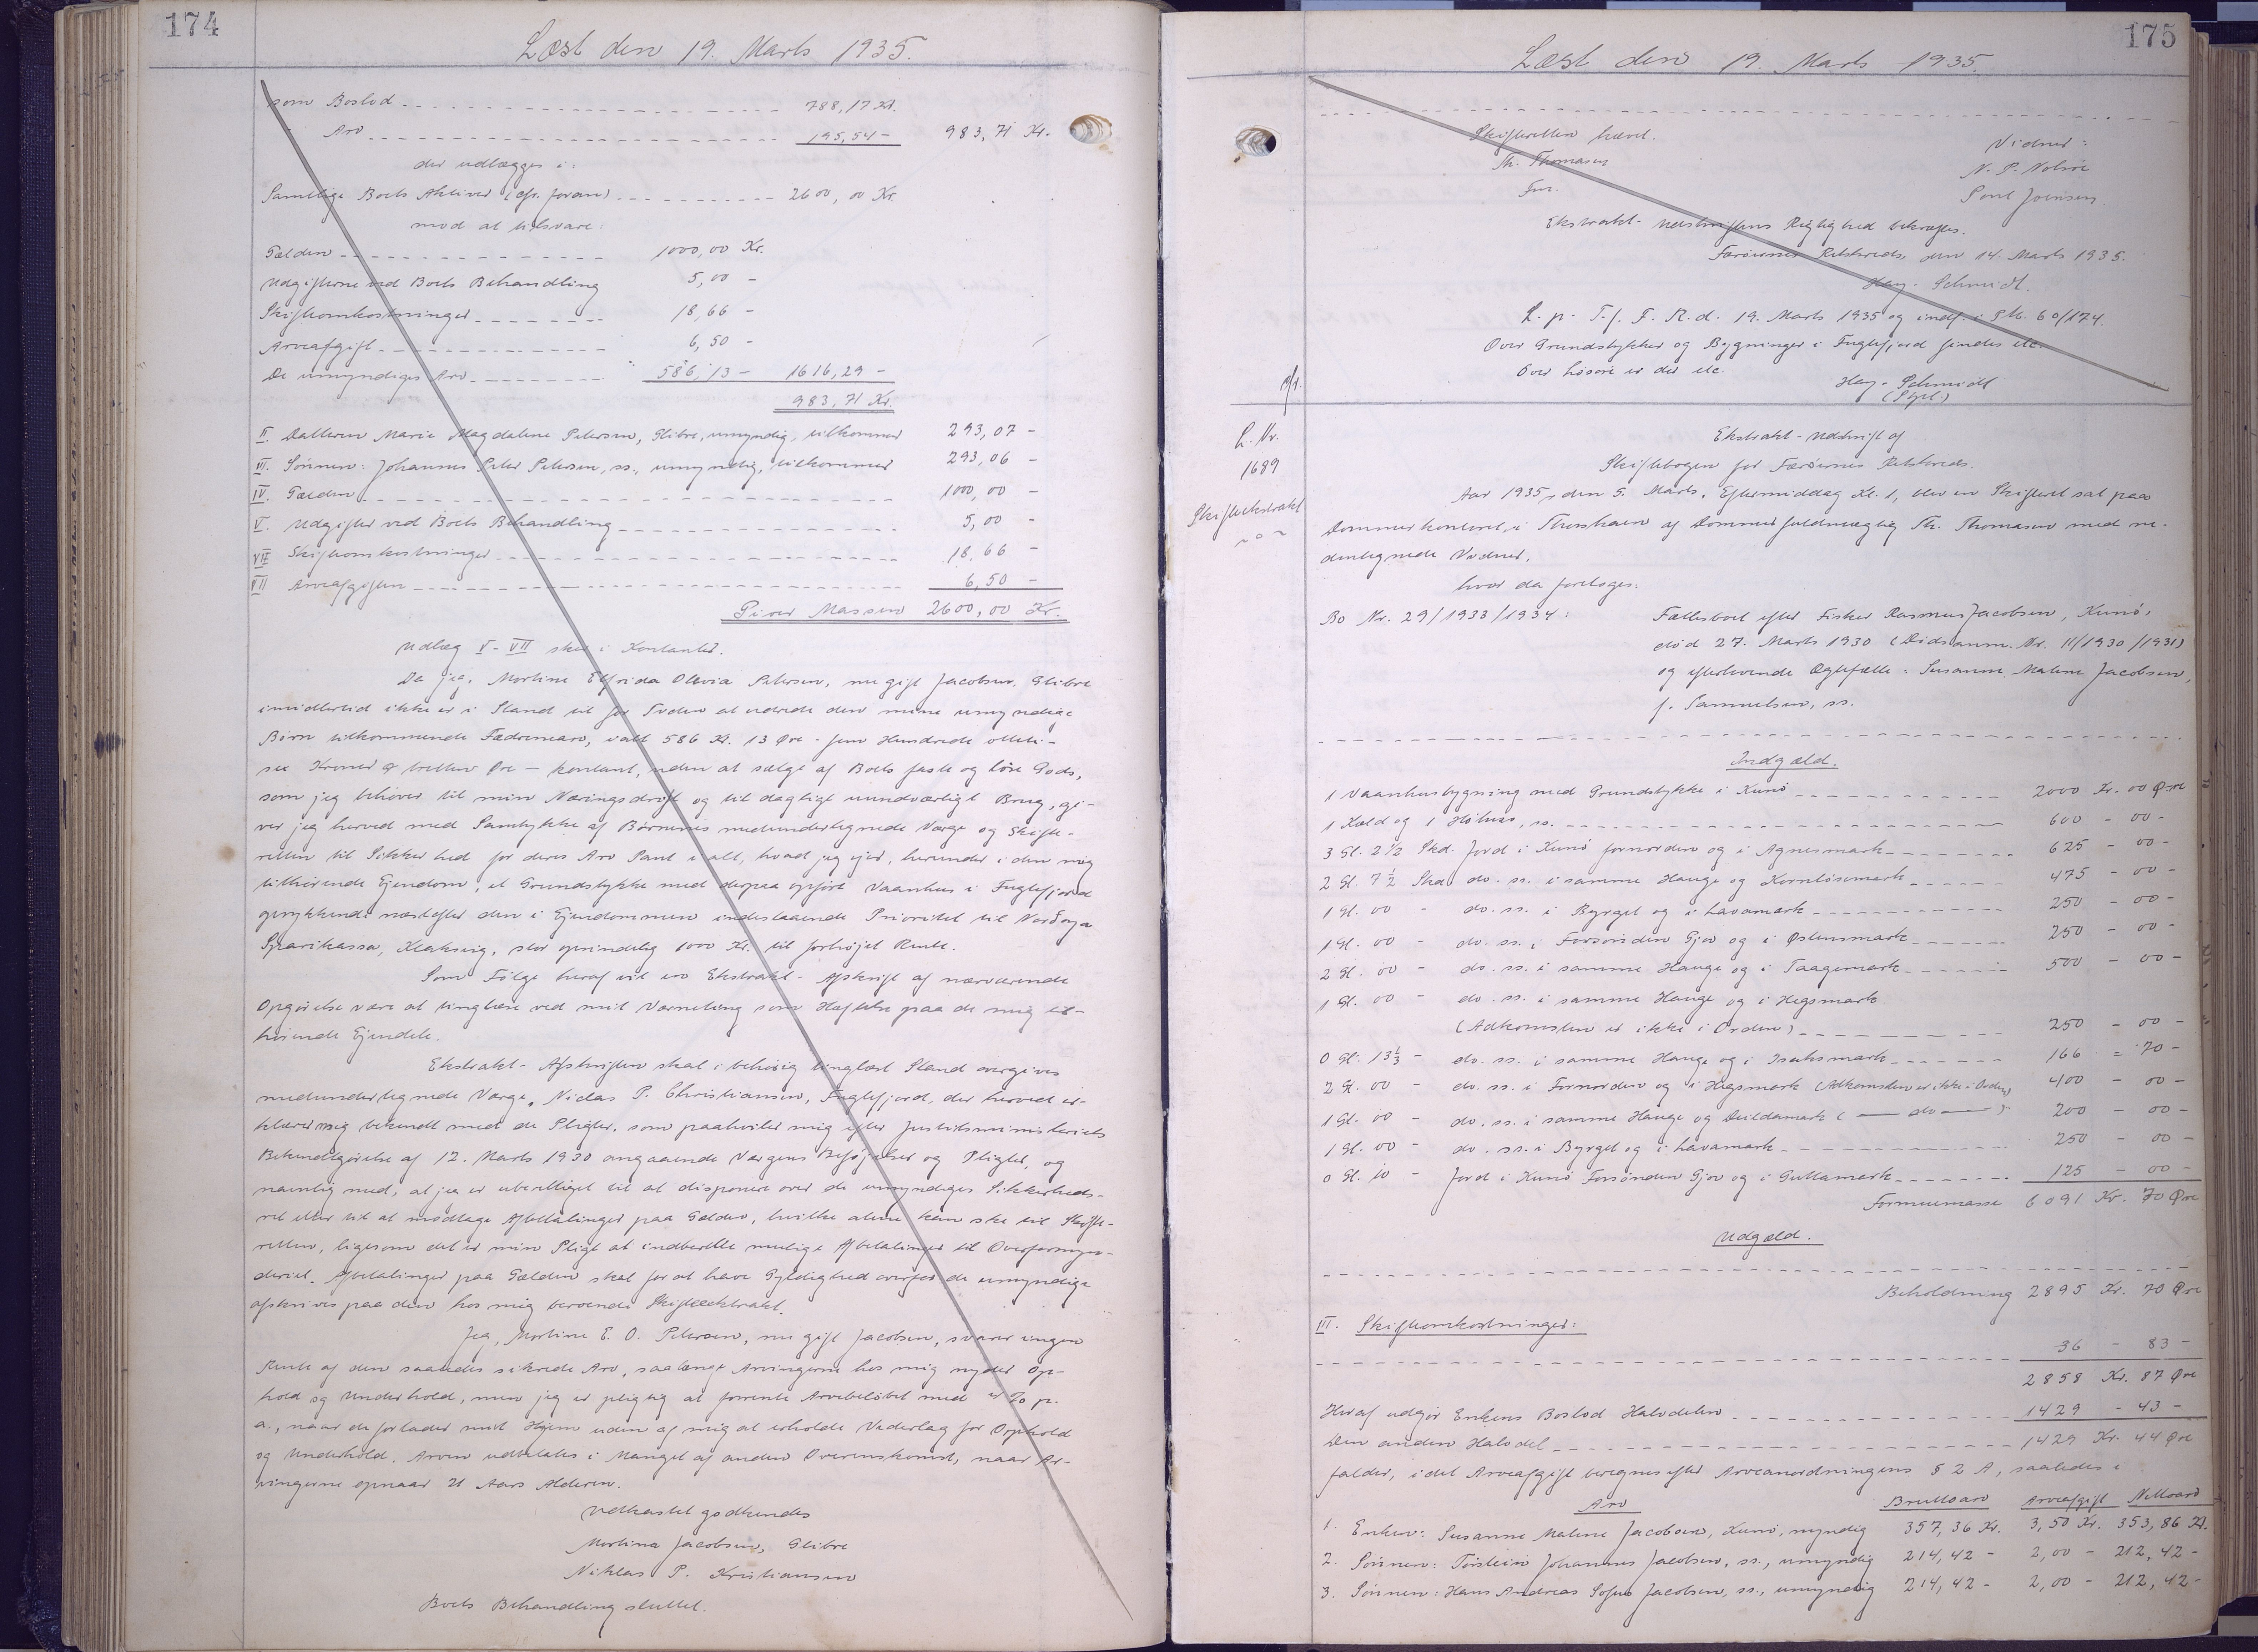 174
Læst den 19. Marts 1935.
som Boslod 788,17 Kr.
" Arv 195,54 - 983,71 Kr.
der udlægges i:
Samtlige Boets Aktiver (cfr. foran) 2600,00 Kr.
mod at tilsvare:
Gælden 1000,00 Kr.
Udgifterne ved Boets Behandling 5,00 -
Skifteomkostninger 18,66 -
Arveafgift 6,50 -
De umyndiges Arv 586,13 - 1616,29 -
983,71 Kr.
II. Datteren Marie Magdalene Petersen, Glibre, umyndig, tilkommer 293,07 -
III. Sønnen: Johannes Peter Petersen, ss., umyndig, tilkommer 293,06 -
IV. Gælden 1000,00 -
V. Udgifter ved Boets Behandling 5,00 -
VI Skifteomkostninger 18,66 -
VII Arveafgiften 6,50 -
Giver Massen 2600,00 Kr.
Udlæg V-VII sker i Kontanter.
Da jeg, Mortine Elfrida Olevia Petersen, nu gift Jacobsen, Glibre
imidlertid ikke er i Stand til for Tiden at udrede den mine umyndige
Børn tilkommende Fædrenearv, ialt 586 Kr. 13 Øre - fem Hundrede otteti-
sex Kroner og tretten Øre - kontant, uden at sælge af Boets faste og løse Gods,
som jeg behøver til min Næringsdrift og til dagligt uundværligt Brug, gi-
ver jeg herved med Samtykke af Børnenes medundertegnede Værge og Skifte-
retten til Sikkerhed for deres Arv Pant i alt, hvad jeg ejer, herunder i den mig
tilhørende Ejendom, et Grundstykke med derpaa opført Vaanhus i Fuglefjord
oprykkende næstefter den i Ejendommen indestaaende Prioritet til Norðoya
Sparikassa, Klaksvig, stor oprindelig 1000 Kr. til forhøjet Rente.
Som Følge heraf vil en Ekstrakt-Afskrift af nærværende
Opgørelse være at tinglæse ved mit Værneting som Hæftelse paa de mig til-
hørende Ejendele.
Ekstrakt-Afskriften skal i behørig tinglæst Stand overgives
medundertegnede Værge, Niclas P. Christiansen, Fuglefjord, der herved er-
klærer mig bekendt med de Pligter, som paahviler mig efter Justitsministeriets
Bekendtgørelse af 12. Marts 1930 angaaende Værgens Beføjelser og Pligter, og
navnlig med, at jeg er uberettiget til at disponere over de umyndiges Sikkerheds-
ret eller til at modtage Afbetalinger paa Gælden, hvilke alene kan ske til Skifte-
retten, ligesom det er min Pligt at indberette mulige Afbetalinger til Overformyn-
deriet. Afbetalinger paa Gælden skal for at have Gyldighed overfor de umyndige
afskrives paa den hos mig beroende Skifteekstrakt.
Jeg, Mortine E. O. Petersen, nu gift Jacobsen, svarer ingen
Rente af den saaledes sikrede Arv, saalænge Arvingerne hos mig nyder Op-
hold og Underhold, men jeg er pligtig at forrente Arvebeløbet med % p.
a., naar de forlader mit Hjem uden af mig at erholde Vederlag for Ophold
og Underhold. Arven udbetales i Mangel af anden Overenskomst, naar Ar-
vingerne opnaar 21 Aars Alderen.
Udkastet godkendes
Mortina Jacobsen, Glibre
Niklas P. Kristiansen
Boets Behandling sluttet.
175
Læst den 19. Marts 1935.
Skifteretten hævet.
Th. Thomasen
Fm.
Vidner:
N. P. Nolsøe
Poul Joensen
Ekstrakt-Udskriftens Rigtighed bekræftes.
Færøernes Retskreds, den 14. Marts 1935.
Hay-Schmidt.
L. p. T. f. F. R. d. 19. Marts 1935 og indf. i Ptb. 60/174.
Over Grundstykker og Bygninger i Fuglefjord findes etc.
Over Løsøre er der etc.
Hay-Schmidt
cfr.
L. Nr.
1689
Skifteekstrakt
Ekstrakt-Udskrift af
Skiftebogen for Færøernes Retskreds.
Aar 1935, den 5. Marts, Eftermiddag Kl. 1, blev en Skifteret sat paa
Dommerkontoret i Thorshavn af Dommerfuldmægtig Th. Thomasen med ne-
dentegnede Vidner,
hvor da foretoges:
Bo Nr. 29/1933/1934: Fællesboet efter Fisker Rasmus Jacobsen, Kunø,
død 27. Marts 1930 (Dødsanm. Nr. 11/1930/1931)
og efterlevende Ægtefælle: Susanne Malene Jacobsen,
f. Samuelsen, ss.
Indgæld.
1 Vaanhusbygning med Grundstykke i Kunø 2000 Kr. 00 Øre
1 Kæld og 1 Høhus, ss. 600 - 00 -
3 Gl. 2 1/2 Skd. Jord i Kunø fornorden og i Agnesmark 625 - 00 -
2 Gl. 7 1/2 Skd. do. ss. i samme Hauge og Kornløsemark 475 - 00 -
1 Gl. 00 - do. ss. i Byrget og i Lavamark 250 - 00 -
1 Gl. 00 - do. ss. i Forsønden Gjov og i Østensmark 250 - 00 -
2 Gl. 00 - do. ss. i samme Hauge og i Taagemark 500 - 00 -
1 Gl. 00 - do. ss. i samme Hauge og i Hegsmark
(Adkomsten er ikke i Orden) 250 - 00 -
0 Gl. 13 1/3 - do. ss. i samme Hauge og i Isaksmark 166 - 70 -
2 Gl. 00 - do. ss. i Fornorden og i Hegsmark (Adkomsten er ikke i Orden) 400 - 00 -
1 Gl. 00 - do. ss. i samme Hauge og Deildamark ( - do - ) 200 - 00 -
1 Gl. 00 - do. ss. i Byrget og i Lavamark 250 - 00 -
0 Gl. 10 - Jord i Kunø Forsønden Gjov og i Gullamark 125 - 00 -
Formuemasse 6091 Kr. 70 Øre
Udgæld.
Beholdning 2895 Kr. 70 Øre
III. Skifteomkostninger:
36 - 83 -
2858 Kr. 87 Øre
Heraf udgør Enkens Boslod Halvdelen 1429 - 43 -
Den anden Halvdel 1429 Kr. 44 Øre
falder, idet Arveafgift beregnes efter Arveanordningens § 2 A, saaledes i
Arv Bruttoarv Arveafgift Nettoarv
1. Enken: Susanne Malene Jacobsen, Kunø, myndig 357,36 Kr. 3,50 Kr. 353,86 Kr.
2. Sønnen: Torstein Johannes Jacobsen, ss., umyndig 214,42 - 2,00 - 212,42 -
3. Sønnen: Hans Andreas Sofus Jacobsen, ss., umyndig 214,42 - 2,00 - 212,42 -